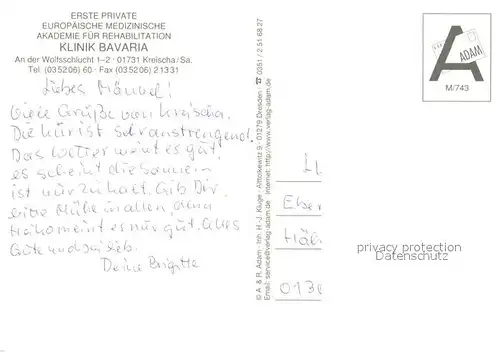 ERSTE PRIVATE
EUROPÄISCHE MEDIZINISCHE
AKADEMIE FÜR REHABILITATION
KLINIK BAVARIA
An der Wolfsschlucht 1–2 · 01731 Kreischa/Sa.
Tel (03 52 06) 60 · Fax (03 52 06) 2 13 31
Liebes
Viele Grüße von Kreischa.
Die Kur ist sehr anstrengend.
Das Wetter meint es gut,
es scheint die Sonne
ist nur zu kalt. Gib Dir
Mühe in allen dann
es nur gut. Alles
Gute und sei lieb.
Deine Brigitte
© A. & R. Adam · Inh. H.-J. Kluge · Altboskewitz 9 · 01279 Dresden · ☎ 0351 / 2 51 68 27
Email: service@verlag-adam.de · Internet: http://www.verlag-adam.de
A
ADAM
M/743
privacy protection
Datenschutz